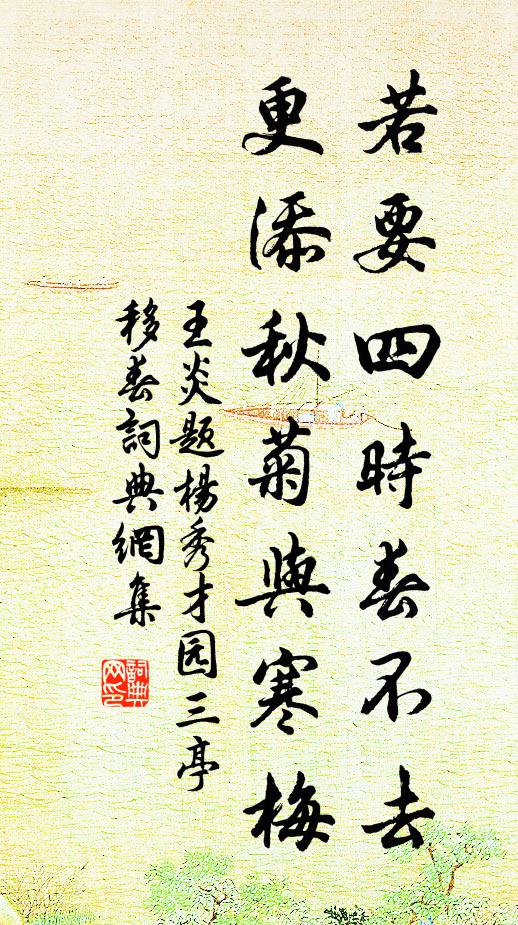 若要四時春不去
更添秋菊與寒梅
王炎题楊秀才园三亭
移春詞典網集
詞典
网印